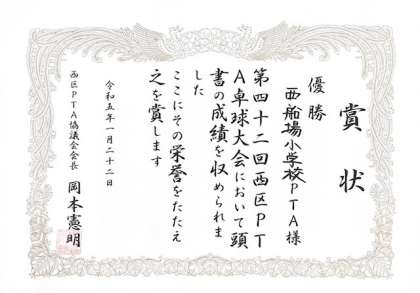 賞状
優勝
西船場小学校PTA様
第四十二回西区PT
A卓球大会において頭
書の成績を収められま
した
ここにその栄誉をたたえ
之を賞します
令和五年一月二十二日
西区PTA協議会会長
岡本憲明